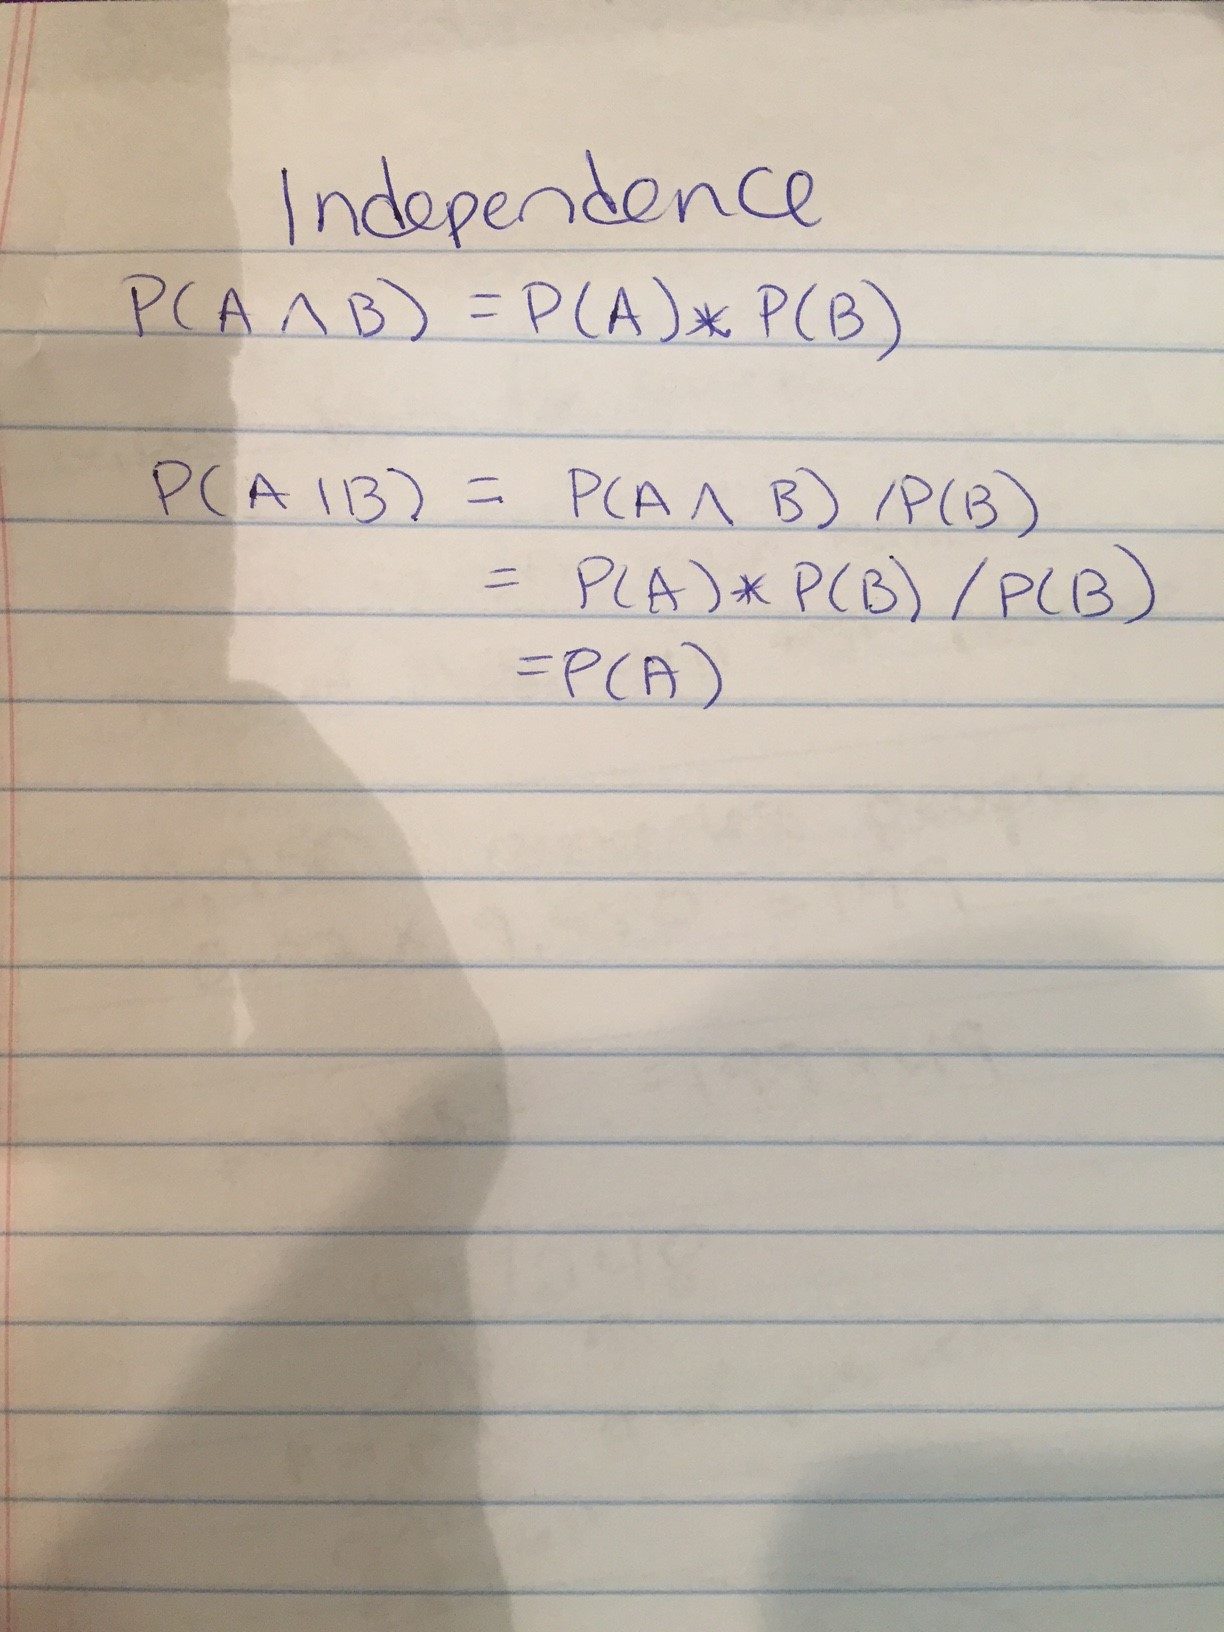 Independence
P(A ∧ B) = P(A) * P(B)
P(A | B) = P(A ∧ B) / P(B)
= P(A) * P(B) / P(B)
= P(A)